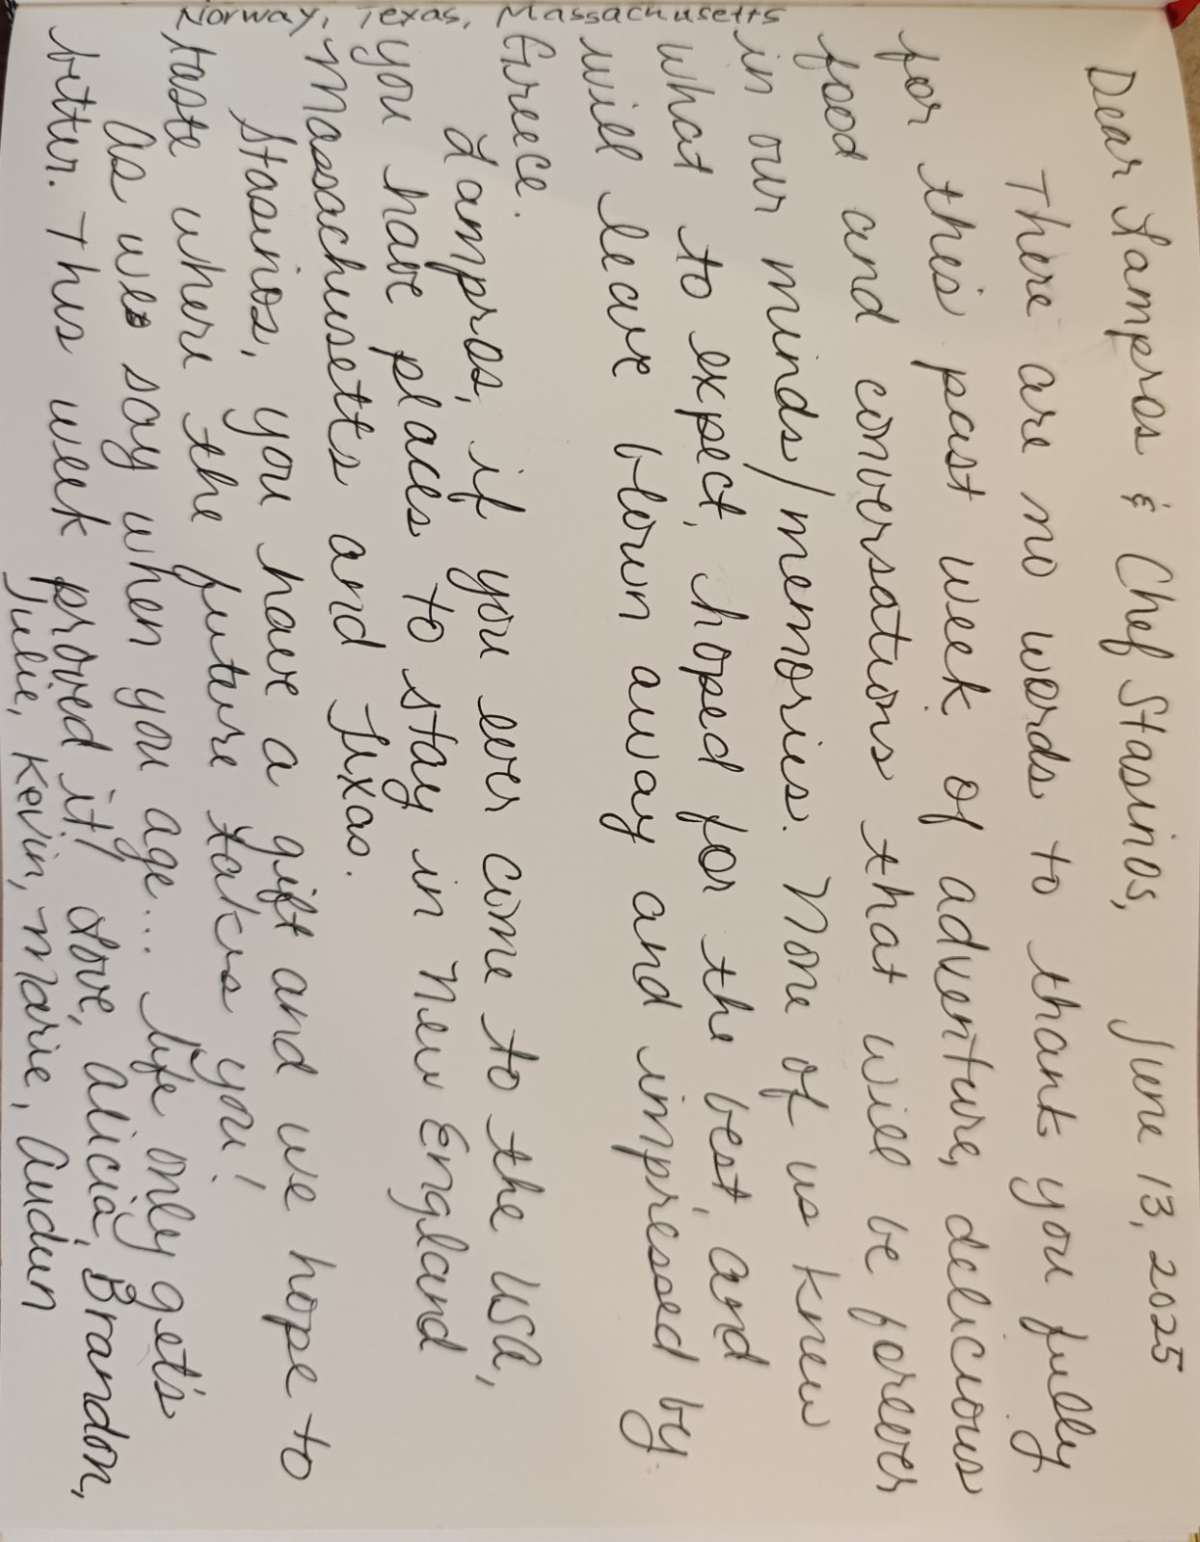 Dear Lampros & Chef Stasinos, June 13, 2025
There are no words to thank you fully
for this past week of adventure, delicious
food and conversations that will be forever
in our minds/memories. None of us knew
what to expect, hoped for the best, and
will leave blown away and impressed by
Greece.
Lampros, if you ever come to the USA,
you have places to stay in New England
Massachusetts and Texas.
Stasinos, you have a gift and we hope to
taste where the future takes you!
As we say when you age... life only gets
better. This week proved it! Love, Alicia, Brandon,
Julie, Kevin, Marie, Audun
Norway, Texas, Massachusetts